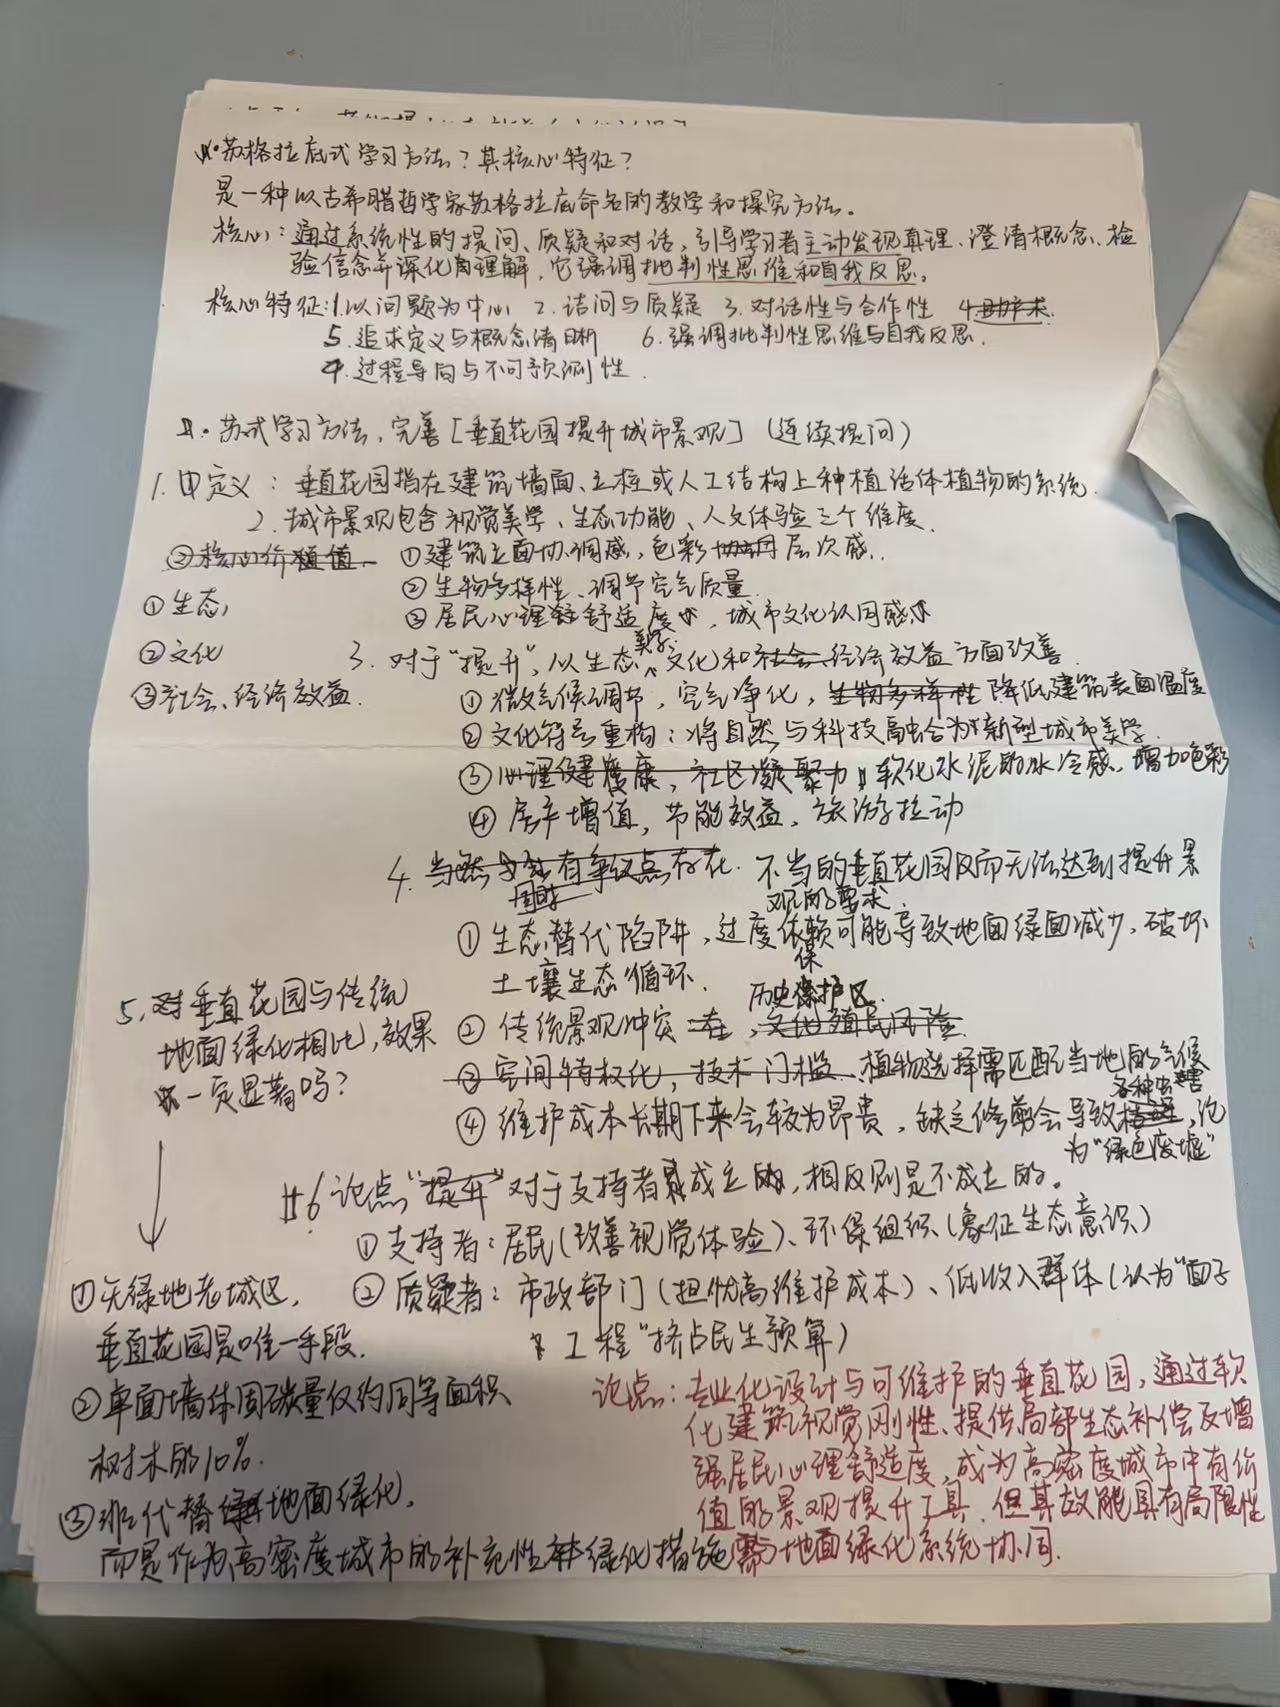 苏格拉底式学习方法？其核心特征？
是一种以古希腊哲学家苏格拉底命名的教学和探究方法。
核心：通过系统性的提问、质疑和对话，引导学习者主动发现真理、澄清概念、检
验信念并深化自理解，它强调批判性思维和自我反思。
核心特征：1.以问题为中心 2.诘问与质疑 3.对话性与合作性 4.
5.追求定义与概念清晰 6.强调批判性思维与自我反思.
4.过程导向与不可预测性.
II.苏式学习方法，完善[垂直花园提升城市景观]（连续提问）
1.①定义：垂直花园指在建筑墙面、立柱或人工结构上种植活体植物的系统.
2.城市景观包含视觉美学、生态功能、人文体验三个维度.
②核心价值 ①建筑立面协调感，色彩协调层次感.
②生物多样性、调节空气质量.
①生态,
③居民心理舒适度，城市文化认同感
②文化
3.对于"提升"，以生态、美学、文化和社会经济效益方面改善.
③社会、经济效益.
①微气候调节，空气净化，生物多样性降低建筑表面温度
②文化符号重构：将自然与科技融合为新型城市美学.
③心理健康，社区凝聚力 软化水泥的冰冷感，增加色彩
④房产增值，节能效益、旅游拉动
4.当然有争议点存在.不当的垂直花园反而无法达到提升景
观的要求.
①生态替代陷阱，过度依赖可能导致地面绿面减少，破坏
土壤生态循环.
5.对垂直花园与传统
地面绿化相比，效果
一定显著吗？
②传统景观冲突在历史保护区，文化殖民风险.
③空间特权化，技术门槛.植物选择需匹配当地的气候
④维护成本长期下来会较为昂贵，缺乏修剪会导致各种虫害，沦
为"绿色废墟"
6论点"提升"对于支持者是成立的，相反则是不成立的。
①支持者：居民（改善视觉体验）、环保组织（象征生态意识）
②质疑者：市政部门（担忧高维护成本）、低收入群体（认为"面子
工程"挤占民生预算）
①无绿地老城区，
垂直花园是唯一手段.
②单面墙体固碳量仅约同等面积
树木的10%.
③非代替地面绿化，
而是作为高密度城市的补充性绿化措施
论点：专业化设计与可维护的垂直花园，通过软
化建筑视觉刚性、提供局部生态补偿及增
强居民心理舒适度，成为高密度城市中有价
值的景观提升工具，但其效能具有局限性
需与地面绿化系统协同.